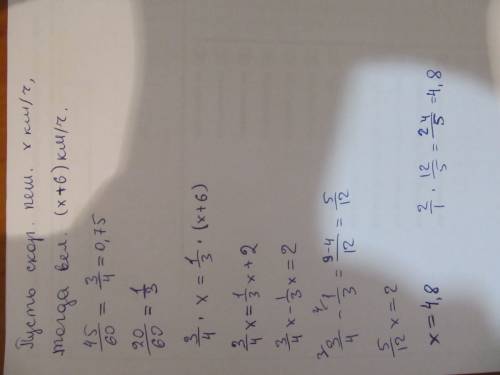 Пусть скор. пеш. x км/ч,
тогда вел. (x+6) км/ч.
45/60 = 3/4 = 0,75
20/60 = 1/3
3/4 · x = 1/3 · (x+6)
3/4 x = 1/3 x + 2
3/4 x - 1/3 x = 2
³3/4 - ⁴1/3 = 9-4/12 = 5/12
5/12 x = 2
2/1 · 12/5 = 24/5 = 4,8
x = 4,8